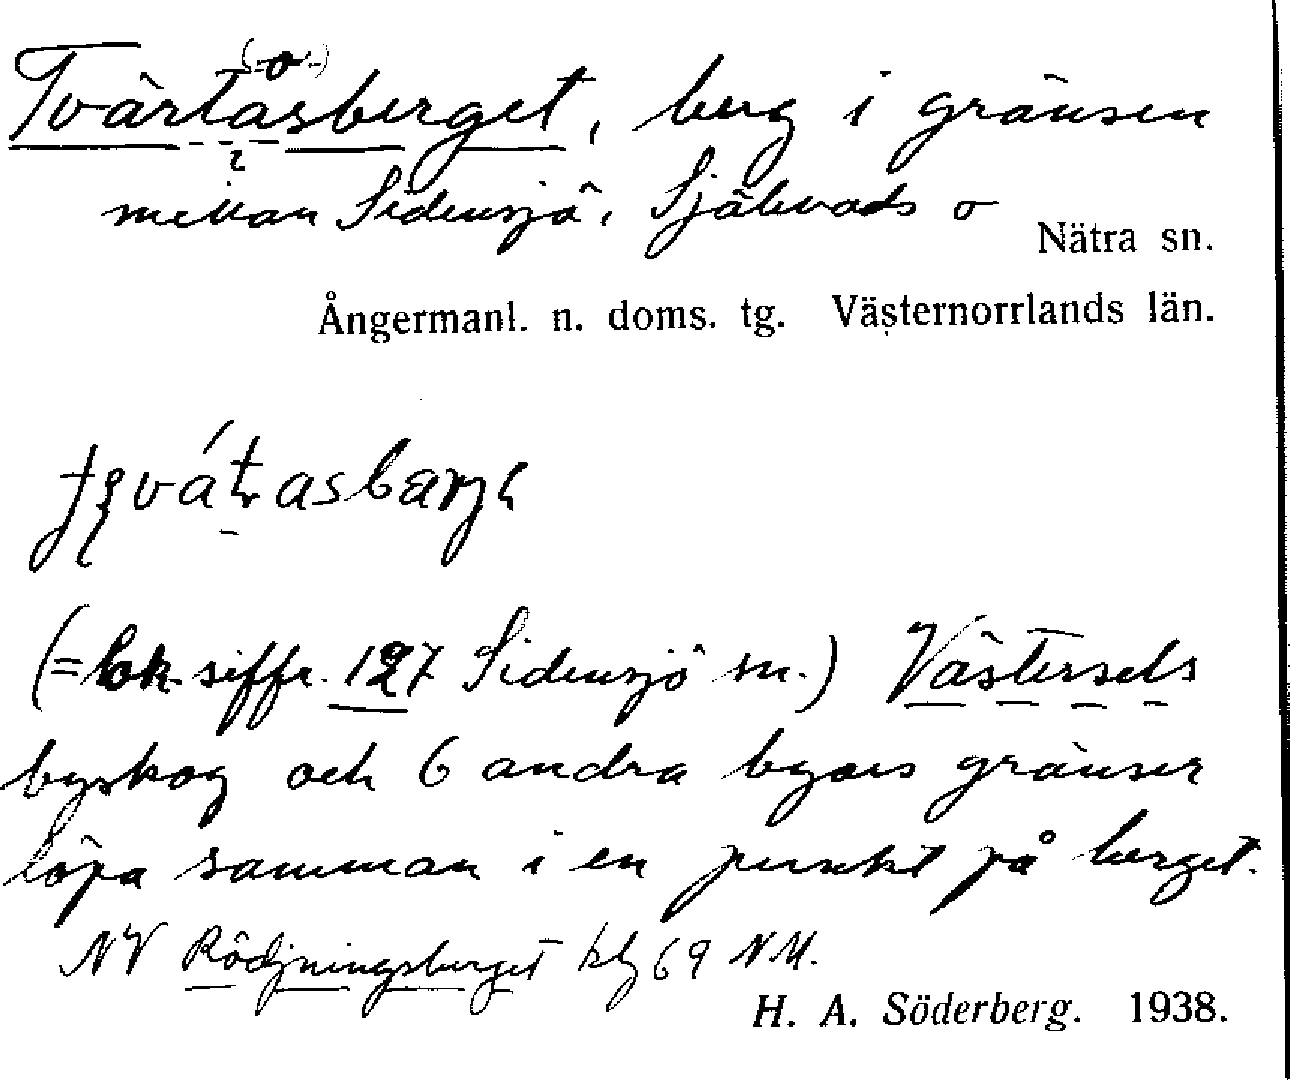 (-o-)
Tvärtåsberget, berg i gränsen
mellan Sidensjö, Själevads o
Nätra sn.
Ångermanl. n. doms. tg. Västernorrlands län.
(= bk. siffr. 127 Sidensjö sn.) Västersels
byskog och 6 andra byars gränser
löpa samman i en punkt på berget.
NV Rödjningsberget kbl 69 N.M.
H. A. Söderberg. 1938.